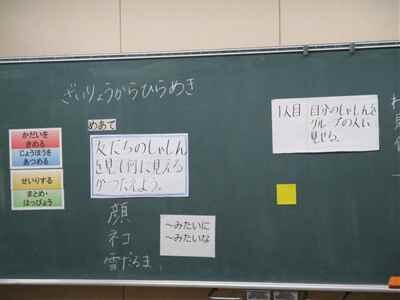 ざいりょうからひらめき
めあて
かだいを
きめる
じょうほうを
あつめる
せいりする
まとめ・
はっぴょう
友だちのしゃしん
を見て何に見える
かつたえよう。
顔
ネコ
雪だるま
～みたいに
～みたいな
1人目 自分のしゃしんを
グループの人に
見せる。